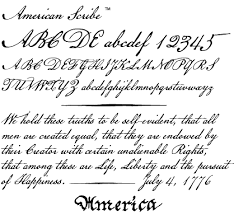 American Scribe ™
ABC DE abcdef 12345
ABCDEFGHIJKLMNOPQRS
TUVWXYZ abcdefghijklmnopqrstuvwxyz
We hold these truths to be self-evident, that all
men are created equal, that they are endowed by
their Creator with certain unalienable Rights,
that among these are Life, Liberty and the pursuit
of Happiness. ———— July 4, 1776
America